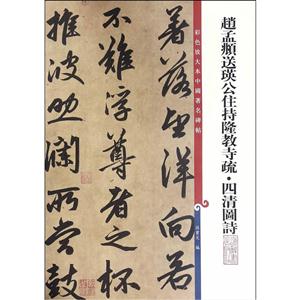 趙孟頫送瑛公住持隆教寺疏·四清圖詩
彩色放大本中國著名碑帖
孫寶文 編
著落望洋向若
不難浮尊者之杯
推波助瀾所當鼓